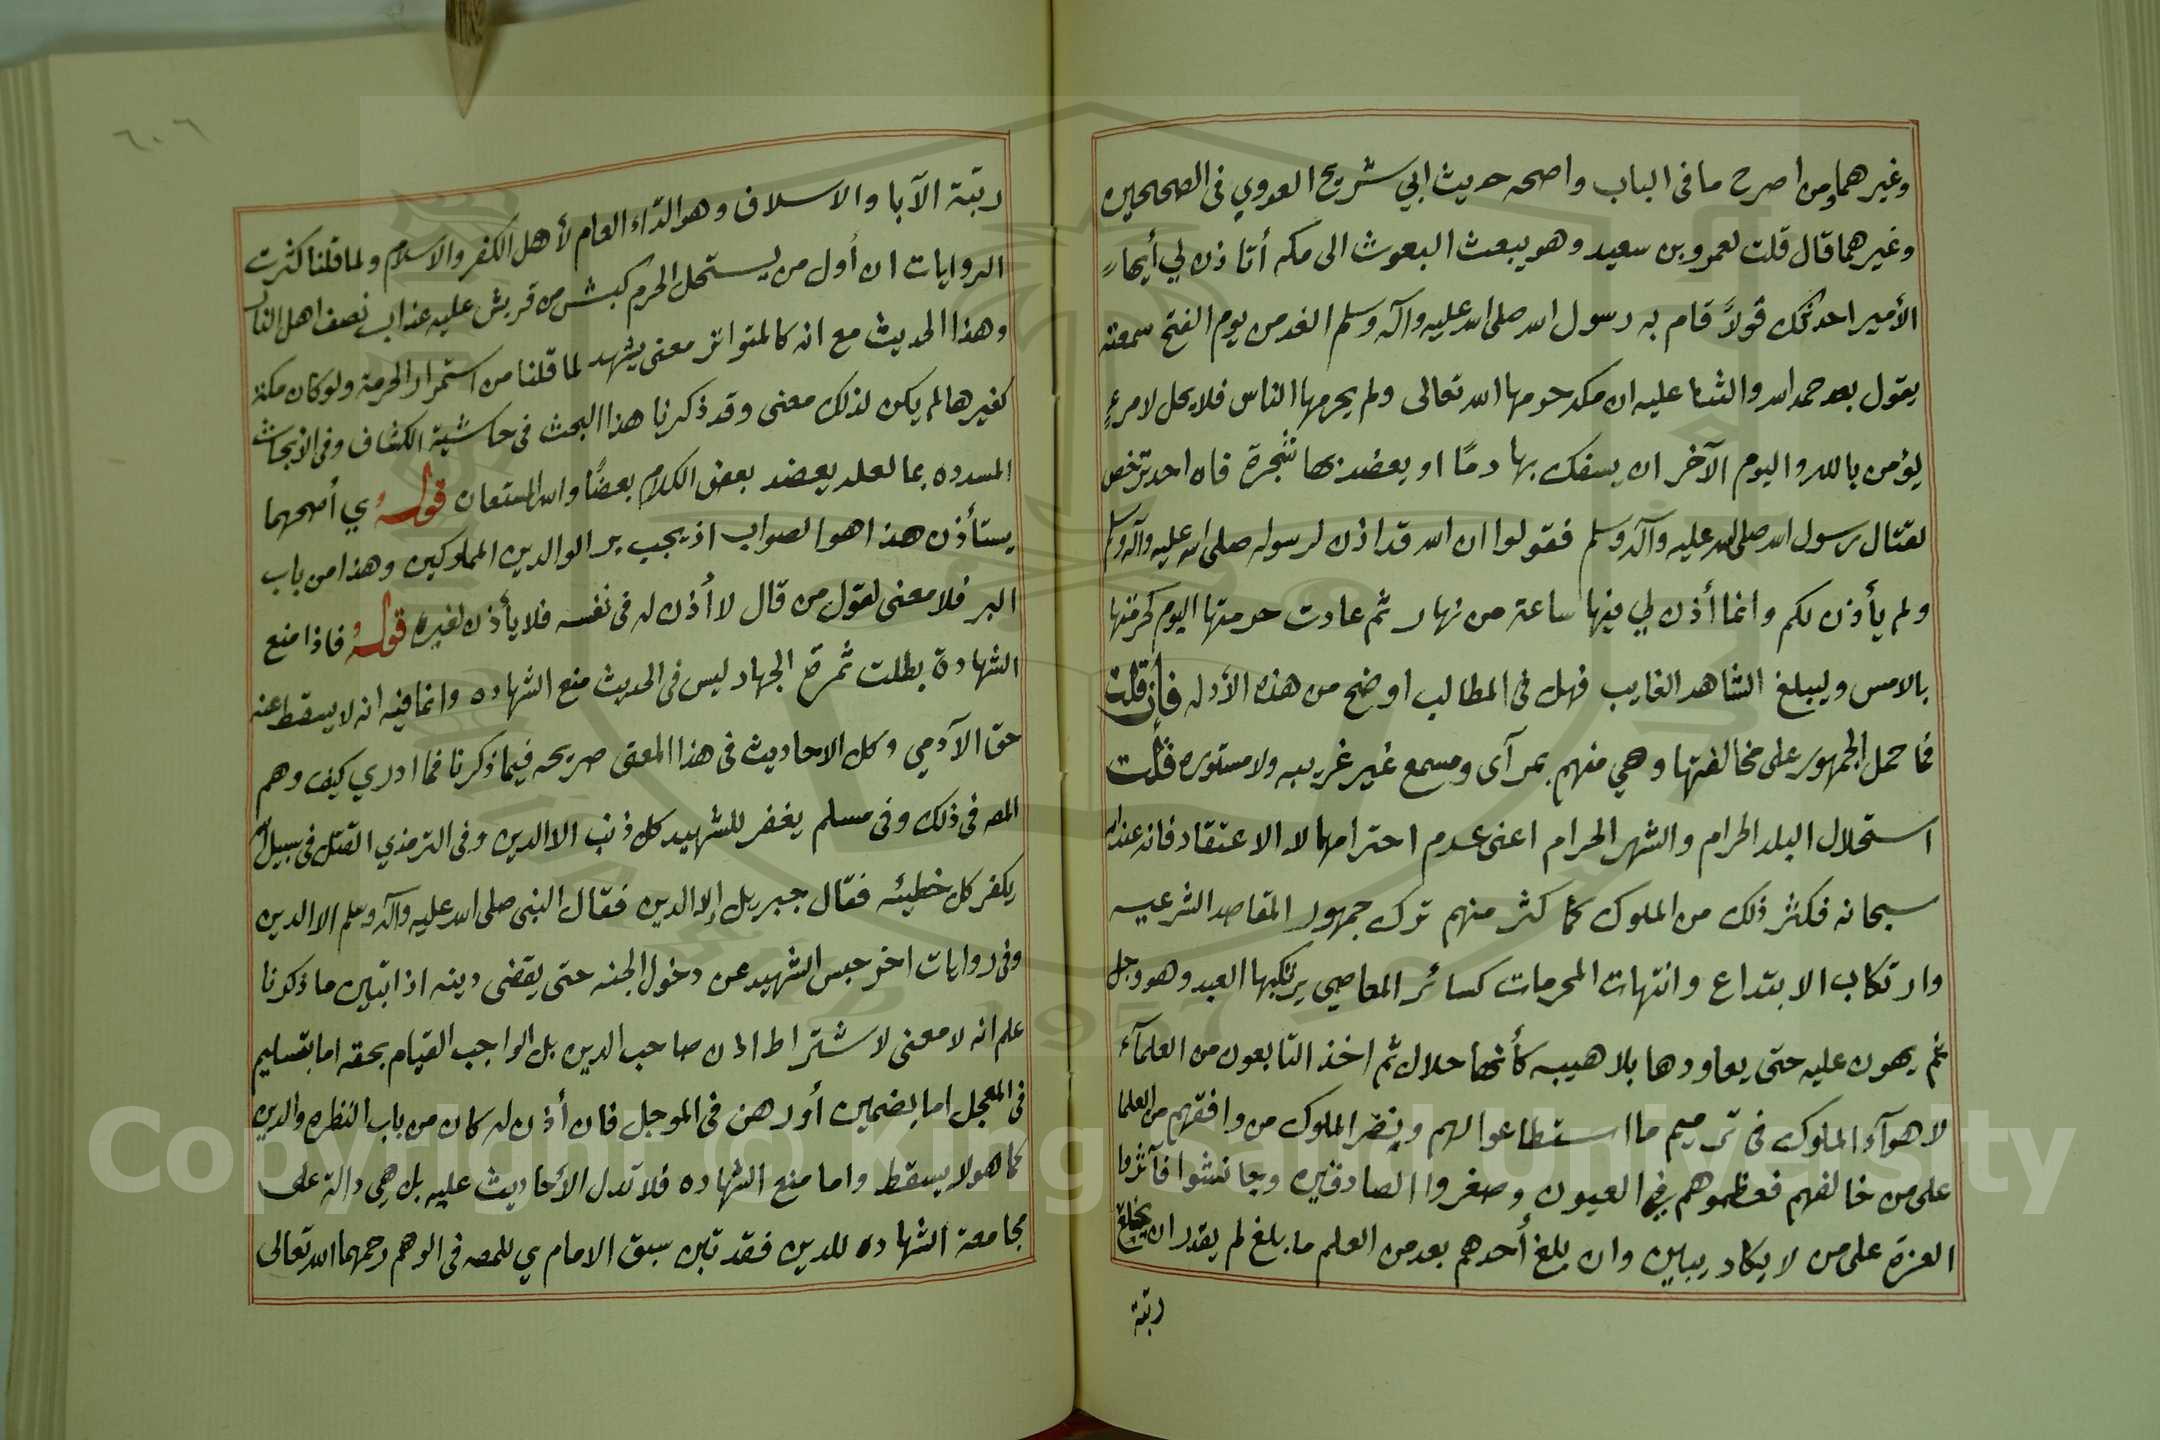 وغيرهما ومن اصرح ما في الباب واصحه حديث ابي شريح العدوي في الصحيحين
وغيرهما قال قلت لعمرو بن سعيد وهو يبعث البعوث الى مكه أتاذن لي أيها
الأمير احدثك قولاً قام به رسول الله صلى الله عليه وآله وسلم الغد من يوم الفتح سمعته
يقول بعد حمد الله والثنا عليه ان مكه حرمها الله تعالى ولم يحرمها الناس فلا يحل لامرءٍ
يؤمن بالله واليوم الآخر ان يسفك بها دمًا او يعضد بها شجرة فان احد ترخص
لقتال رسول الله صلى الله عليه وآله وسلم فقولوا ان الله قد اذن لرسوله صلى الله عليه وآله وسلم
ولم يأذن لكم وانما أذن لي فيها ساعة من نهار ثم عادت حرمتها اليوم كحرمتها
بالامس وليبلغ الشاهد الغايب فهل في المطالب اوضح من هذه الأدله فإن قلت
فما حمل الجمهور على مخالفتها وهي منهم بمرآى ومسمع غير غريبه ولا مستوره قلت
استحلال البلد الحرام والشهر الحرام اعني عدم احترامهما لا الاعتقاد فانه عند الله
سبحانه فكثر ذلك من الملوك كما كثر منهم ترك جمهور المقاصد الشرعيه
وارتكاب الابتداع وانتهات المحرمات كسائر المعاصي يرتكبها العبد وهو وجل
ثم يهون عليه حتى يعاودها بلا هيبه كأنها حلال ثم اخذ التابعون من العلمآء
لاهوآء الملوك في ترميم ما استطاعوا لهم وينضر الملوك من وافقهم من العلما
على من خالفهم فعظموهم في العيون وصغروا الصادقين وجانشوا فآثروا
العزة على من لا يكاد يباين وان بلغ أحدهم بعد من العلم ما بلغ لم يقدر ان يخلع
ربقة
٦٠٦
ربقة الآبا والاسلاف وهو الدّاء العام لأهل الكفر والاسلام ولما قلنا كثرت
الروايات ان أول من يستحل الحرم كبش من قريش عليه عذاب نصف اهل النار
وهذا الحديث مع انه كالمتواتر معنى يشهد لما قلنا من استمرار الحرمة ولو كان مكة
كغيرها لم يكن لذلك معنى وقد ذكرنا هذا البحث في حاشية الكشاف وفي الابحاث
المسدده بما لعله يعضد بعض الكلام بعضًا والله المستعان قولهُ ي أصحهما
يستأذن هذا هو الصواب اذ يجب بر الوالدين المملوكين وهذا من باب
البر فلا معنى لقول من قال لا أذن له في نفسه فلا يأذن لغيره قولهُ فاذا منع
الشهادة بطلت ثمرة الجهاد ليس في الحديث منع الشهاده وانما فيه انه لا يسقط عنه
حق الآدمي وكل الاحاديث في هذا المعنى صريحه فيما ذكرنا فما ادري كيف وهم
المص في ذلك وفي مسلم يغفر للشهيد كل ذنب الا الدين وفي الترمذي القتل في سبيل الله
يكفر كل خطيئه فقال جبريل إلا الدين فقال النبي صلى الله عليه وآله وسلم الا الدين
وفي روايات اخر حبس الشهيد عن دخول الجنه حتى يقضى دينه اذا تبين ما ذكرنا
علم انه لا معنى لاشتراط اذن صاحب الدين بل الواجب القيام بحقه اما بتسليم
في المعجل اما بضمين أو رهن في الموجل فان أذن له كان من باب النظره والدين
كما هو لا يسقط واما منع الشهاده فلا تدل الأحاديث عليه بل هي دالة على
مجامعة الشهاده للدين فقد تبين سبق الامام ي للمص في الوهم رحمهما الله تعالى
Copyright © King Saud University
1957